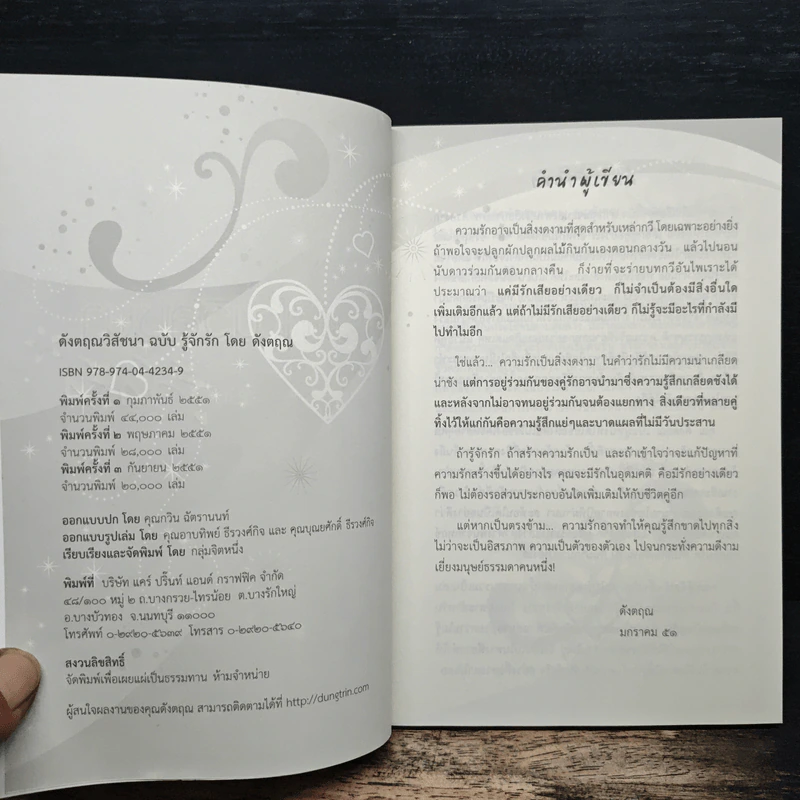 ดังตฤณวิสัชนา ฉบับ รู้จักรัก โดย ดังตฤณ
ISBN 978-974-04-4234-9
พิมพ์ครั้งที่ ๑ กุมภาพันธ์ ๒๕๕๑
จำนวนพิมพ์ ๔๔,๐๐๐ เล่ม
พิมพ์ครั้งที่ ๒ พฤษภาคม ๒๕๕๑
จำนวนพิมพ์ ๒๘,๐๐๐ เล่ม
พิมพ์ครั้งที่ ๓ กันยายน ๒๕๕๑
จำนวนพิมพ์ ๒๐,๐๐๐ เล่ม
ออกแบบปก โดย คุณกวิน ฉัตรานนท์
ออกแบบรูปเล่ม โดย คุณอาบทิพย์ ธีรวงศ์กิจ และ คุณบุณยศักดิ์ ธีรวงศ์กิจ
เรียบเรียงและจัดพิมพ์ โดย กลุ่มจิตหนึ่ง
พิมพ์ที่ บริษัท แคร์ ปริ๊นท์ แอนด์ กราฟฟิค จำกัด
๔๘/๑๐๐ หมู่ ๒ ถ.บางกรวย-ไทรน้อย ต.บางรักใหญ่
อ.บางบัวทอง จ.นนทบุรี ๑๑๐๐๐
โทรศัพท์ ๐-๒๙๒๐-๕๖๓๙ โทรสาร ๐-๒๙๒๐-๕๖๔๐
สงวนลิขสิทธิ์
จัดพิมพ์เพื่อเผยแผ่เป็นธรรมทาน ห้ามจำหน่าย
ผู้สนใจผลงานของคุณดังตฤณ สามารถติดตามได้ที่ http://dungtrin.com
คำนำผู้เขียน
ความรักอาจเป็นสิ่งงดงามที่สุดสำหรับเหล่ากวี โดยเฉพาะอย่างยิ่ง
ถ้าพอใจจะปลูกผักปลูกผลไม้กินกันเองตอนกลางวัน แล้วไปนอน
นับดาวร่วมกันตอนกลางคืน ก็ง่ายที่จะร่ายบทกวีอันไพเราะได้
ประมาณว่า แค่มีรักเสียอย่างเดียว ก็ไม่จำเป็นต้องมีสิ่งอื่นใด
เพิ่มเติมอีกแล้ว แต่ถ้าไม่มีรักเสียอย่างเดียว ก็ไม่รู้จะมีอะไรที่กำลังมี
ไปทำไมอีก
ใช่แล้ว... ความรักเป็นสิ่งงดงาม ในคำว่ารักไม่มีความน่าเกลียด
น่าชัง แต่การอยู่ร่วมกันของคู่รักอาจนำมาซึ่งความรู้สึกเกลียดชังได้
และหลังจากไม่อาจทนอยู่ร่วมกันจนต้องแยกทาง สิ่งเดียวที่หลายคู่
ทิ้งไว้ให้แก่กันคือความรู้สึกแย่ๆและบาดแผลที่ไม่มีวันประสาน
ถ้ารู้จักรัก ถ้าสร้างความรักเป็น และถ้าเข้าใจว่าจะแก้ปัญหาที่
ความรักสร้างขึ้นได้อย่างไร คุณจะมีรักในอุดมคติ คือมีรักอย่างเดียว
ก็พอ ไม่ต้องรอส่วนประกอบอันใดเพิ่มเติมให้กับชีวิตคู่อีก
แต่หากเป็นตรงข้าม... ความรักอาจทำให้คุณรู้สึกขาดไปทุกสิ่ง
ไม่ว่าจะเป็นอิสรภาพ ความเป็นตัวของตัวเอง ไปจนกระทั่งความดีงาม
เยี่ยงมนุษย์ธรรมดาคนหนึ่ง!
ดังตฤณ
มกราคม ๕๑